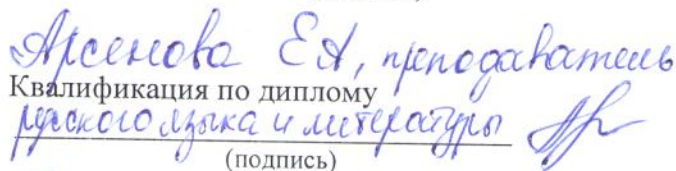 Арсенова ЕА, преподаватель
Квалификация по диплому
русского языка и литературы
(подпись)